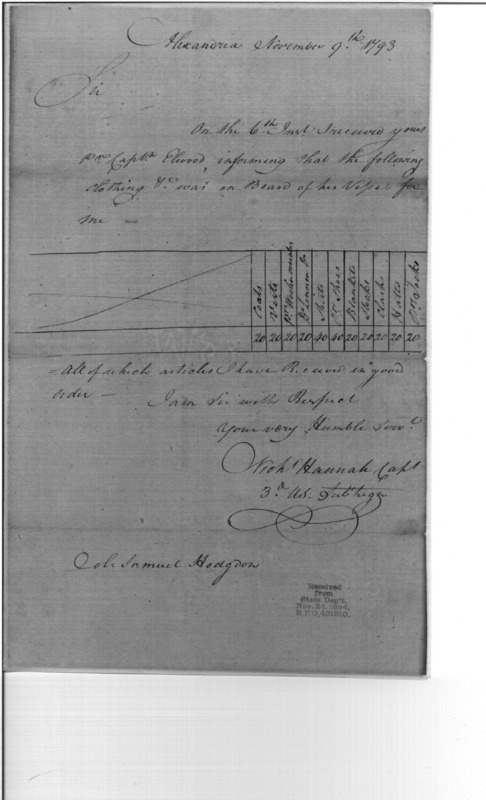 Alexandria November 9.th 1793
Sir
On the 6th Inst. I received yours
Pr Captn Elwood, informing that the following
Clothing &c. was on Board of his Vessel for
me —
Coats Vests Shirts Shoes Blankets Stocks Clasps Hatts
20 20 20 20 40 40 20 20 20 20 20
= all of which articles I have Received in good
order —
I am Sir with Respect
Your very Humble Serv.t
Nichs Hannah Capt
3.d US. Sub Legn
Col. Samuel Hodgdon
Received
from
State Dep't.
Nov. 24, 1894.
R.P.O,401310.